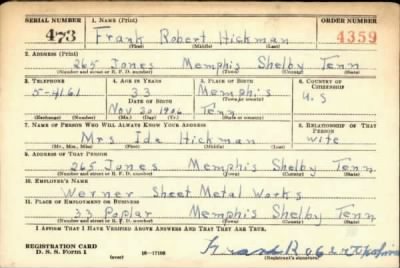 SERIAL NUMBER 1. NAME (Print) ORDER NUMBER
473 Frank Robert Hickman 4359
(First) (Middle) (Last)
2. ADDRESS (Print)
265 Jones Memphis Shelby Tenn
(Number and street or R. F. D. number) (Town) (County) (State)
3. TELEPHONE 4. AGE IN YEARS 5. PLACE OF BIRTH 6. COUNTRY OF CITIZENSHIP
5-4161 33 Memphis U.S
DATE OF BIRTH (Town or county)
Nov 20 1906 Tenn
(Exchange) (Number) (Mo.) (Day) (Yr.) (State or country)
7. NAME OF PERSON WHO WILL ALWAYS KNOW YOUR ADDRESS 8. RELATIONSHIP OF THAT PERSON
Mrs Ida Hickman wife
(Mr., Mrs., Miss) (First) (Middle) (Last)
9. ADDRESS OF THAT PERSON
265 Jones Memphis Shelby Tenn.
(Number and street or R. F. D. number) (Town) (County) (State)
10. EMPLOYER'S NAME
Werner Sheet Metal Works
11. PLACE OF EMPLOYMENT OR BUSINESS
33 Poplar Memphis Shelby Tenn
(Number and street or R. F. D. number) (Town) (County) (State)
I AFFIRM THAT I HAVE VERIFIED ABOVE ANSWERS AND THAT THEY ARE TRUE.
REGISTRATION CARD
D. S. S. Form 1 (over) 16—17105 (Registrant's signature)